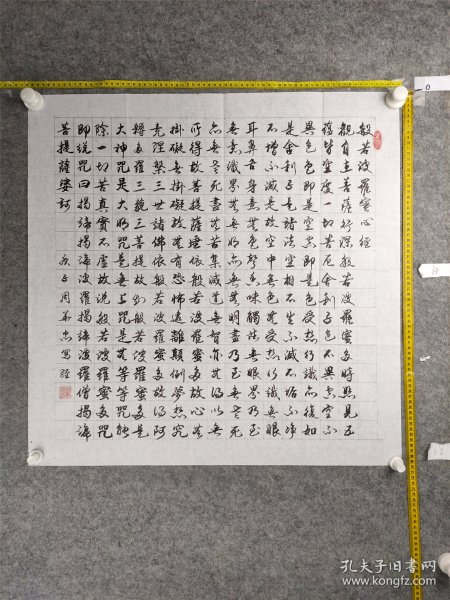 般若波羅蜜心經
觀自在菩薩行深般若波羅蜜多時照見五
蘊皆空度一切苦厄舍利子色不異空空不
異色色即是空空即是色受想行識亦復如
是舍利子是諸法空相不生不滅不垢不淨
不增不減是故空中無色無受想行識無眼
耳鼻舌身意無色聲香味觸法無眼界乃至
無意識界無無明亦無無明盡乃至無老死
亦無老死盡無苦集滅道無智亦無得以無
所得故菩提薩埵依般若波羅蜜多故心無
掛礙無掛礙故無有恐怖遠離顛倒夢想究
竟涅槃三世諸佛依般若波羅蜜多故得阿
耨多羅三藐三菩提故知般若波羅蜜多是
大神咒是大明咒是無上咒是無等等咒能
除一切苦真實不虛故說般若波羅蜜多咒
即說咒曰揭諦揭諦波羅揭諦波羅僧揭諦
菩提薩婆訶 庚子周寫經
孔夫子旧书网
www.kongfz.com